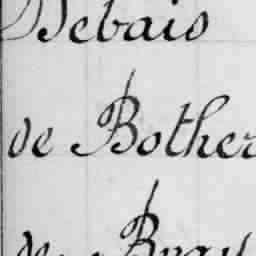 Debais
de Bother
de Bray